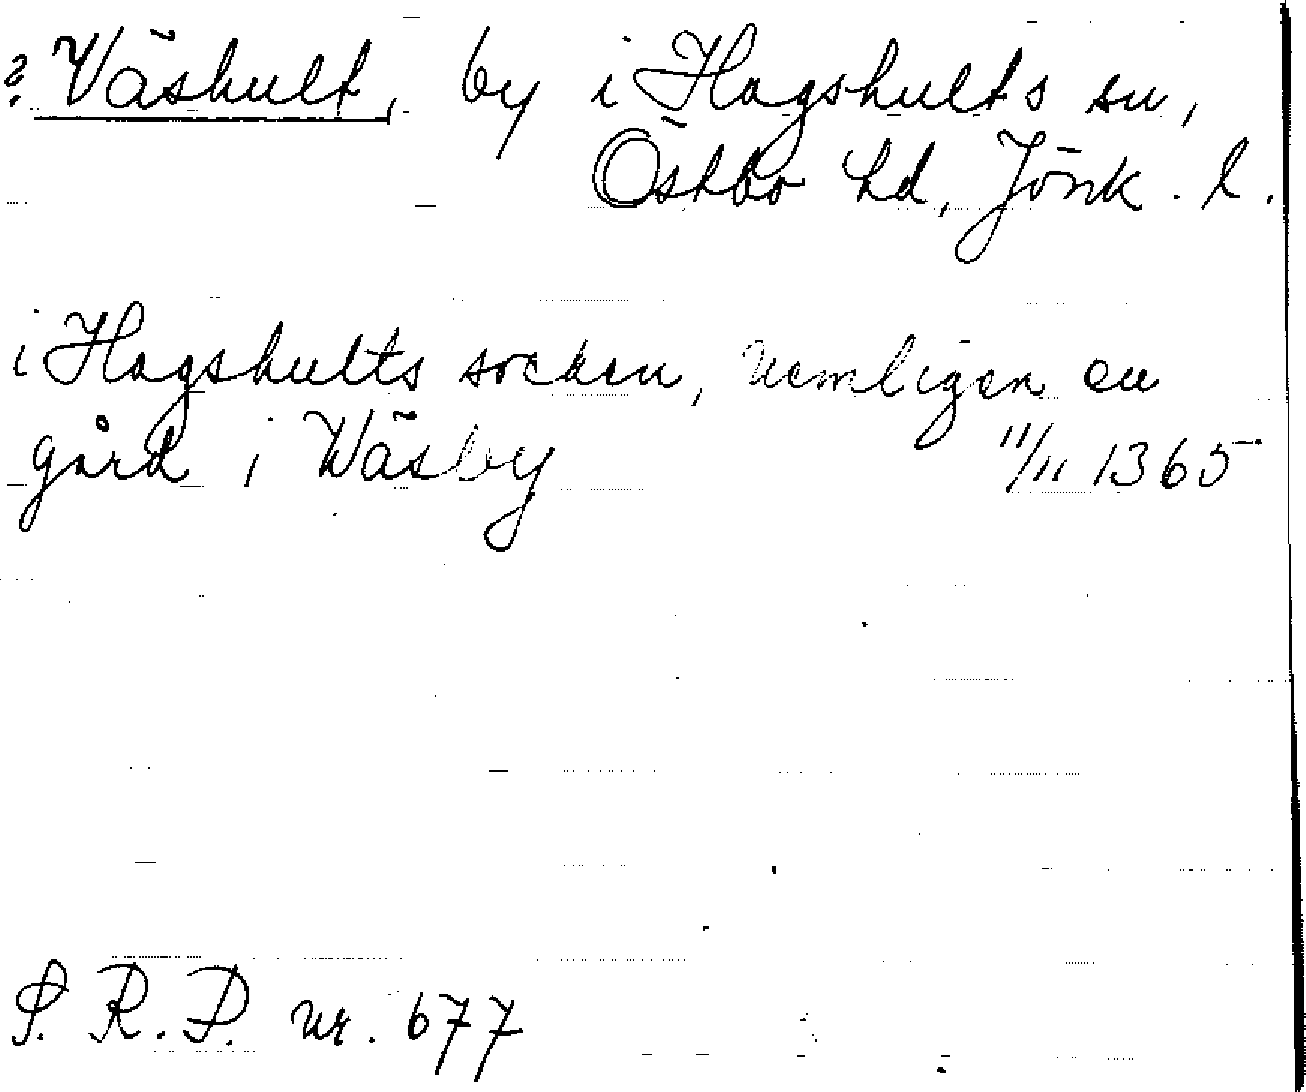 ? Väshult, by i Hagshults sn,
Östbo hd, Jönk. l.
i Hagshults socken, nemligen en
gård i Wäsby 11/11 1365
S. R. P. nr. 677